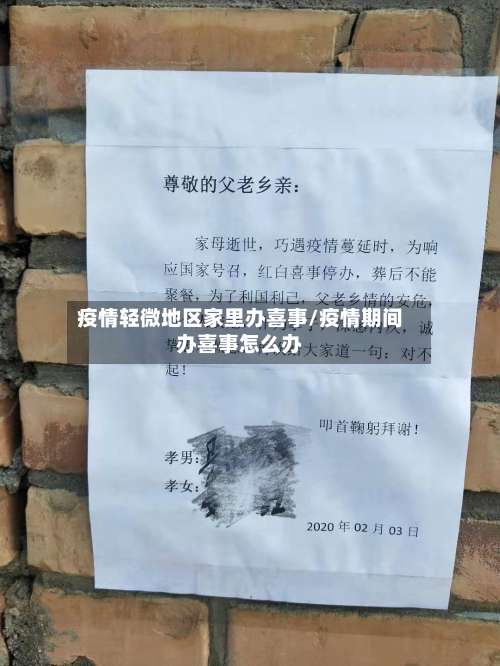 尊敬的父老乡亲：
家母逝世，巧遇疫情蔓延时，为响
应国家号召，红白喜事停办，葬后不能
聚餐，为了利国利己，父老乡情的安危，
疫情轻微地区家里办喜事/疫情期间
办喜事怎么办
诚
大家道一句：对不
起！
叩首鞠躬拜谢！
孝男：
孝女：
2020 年 02 月 03 日